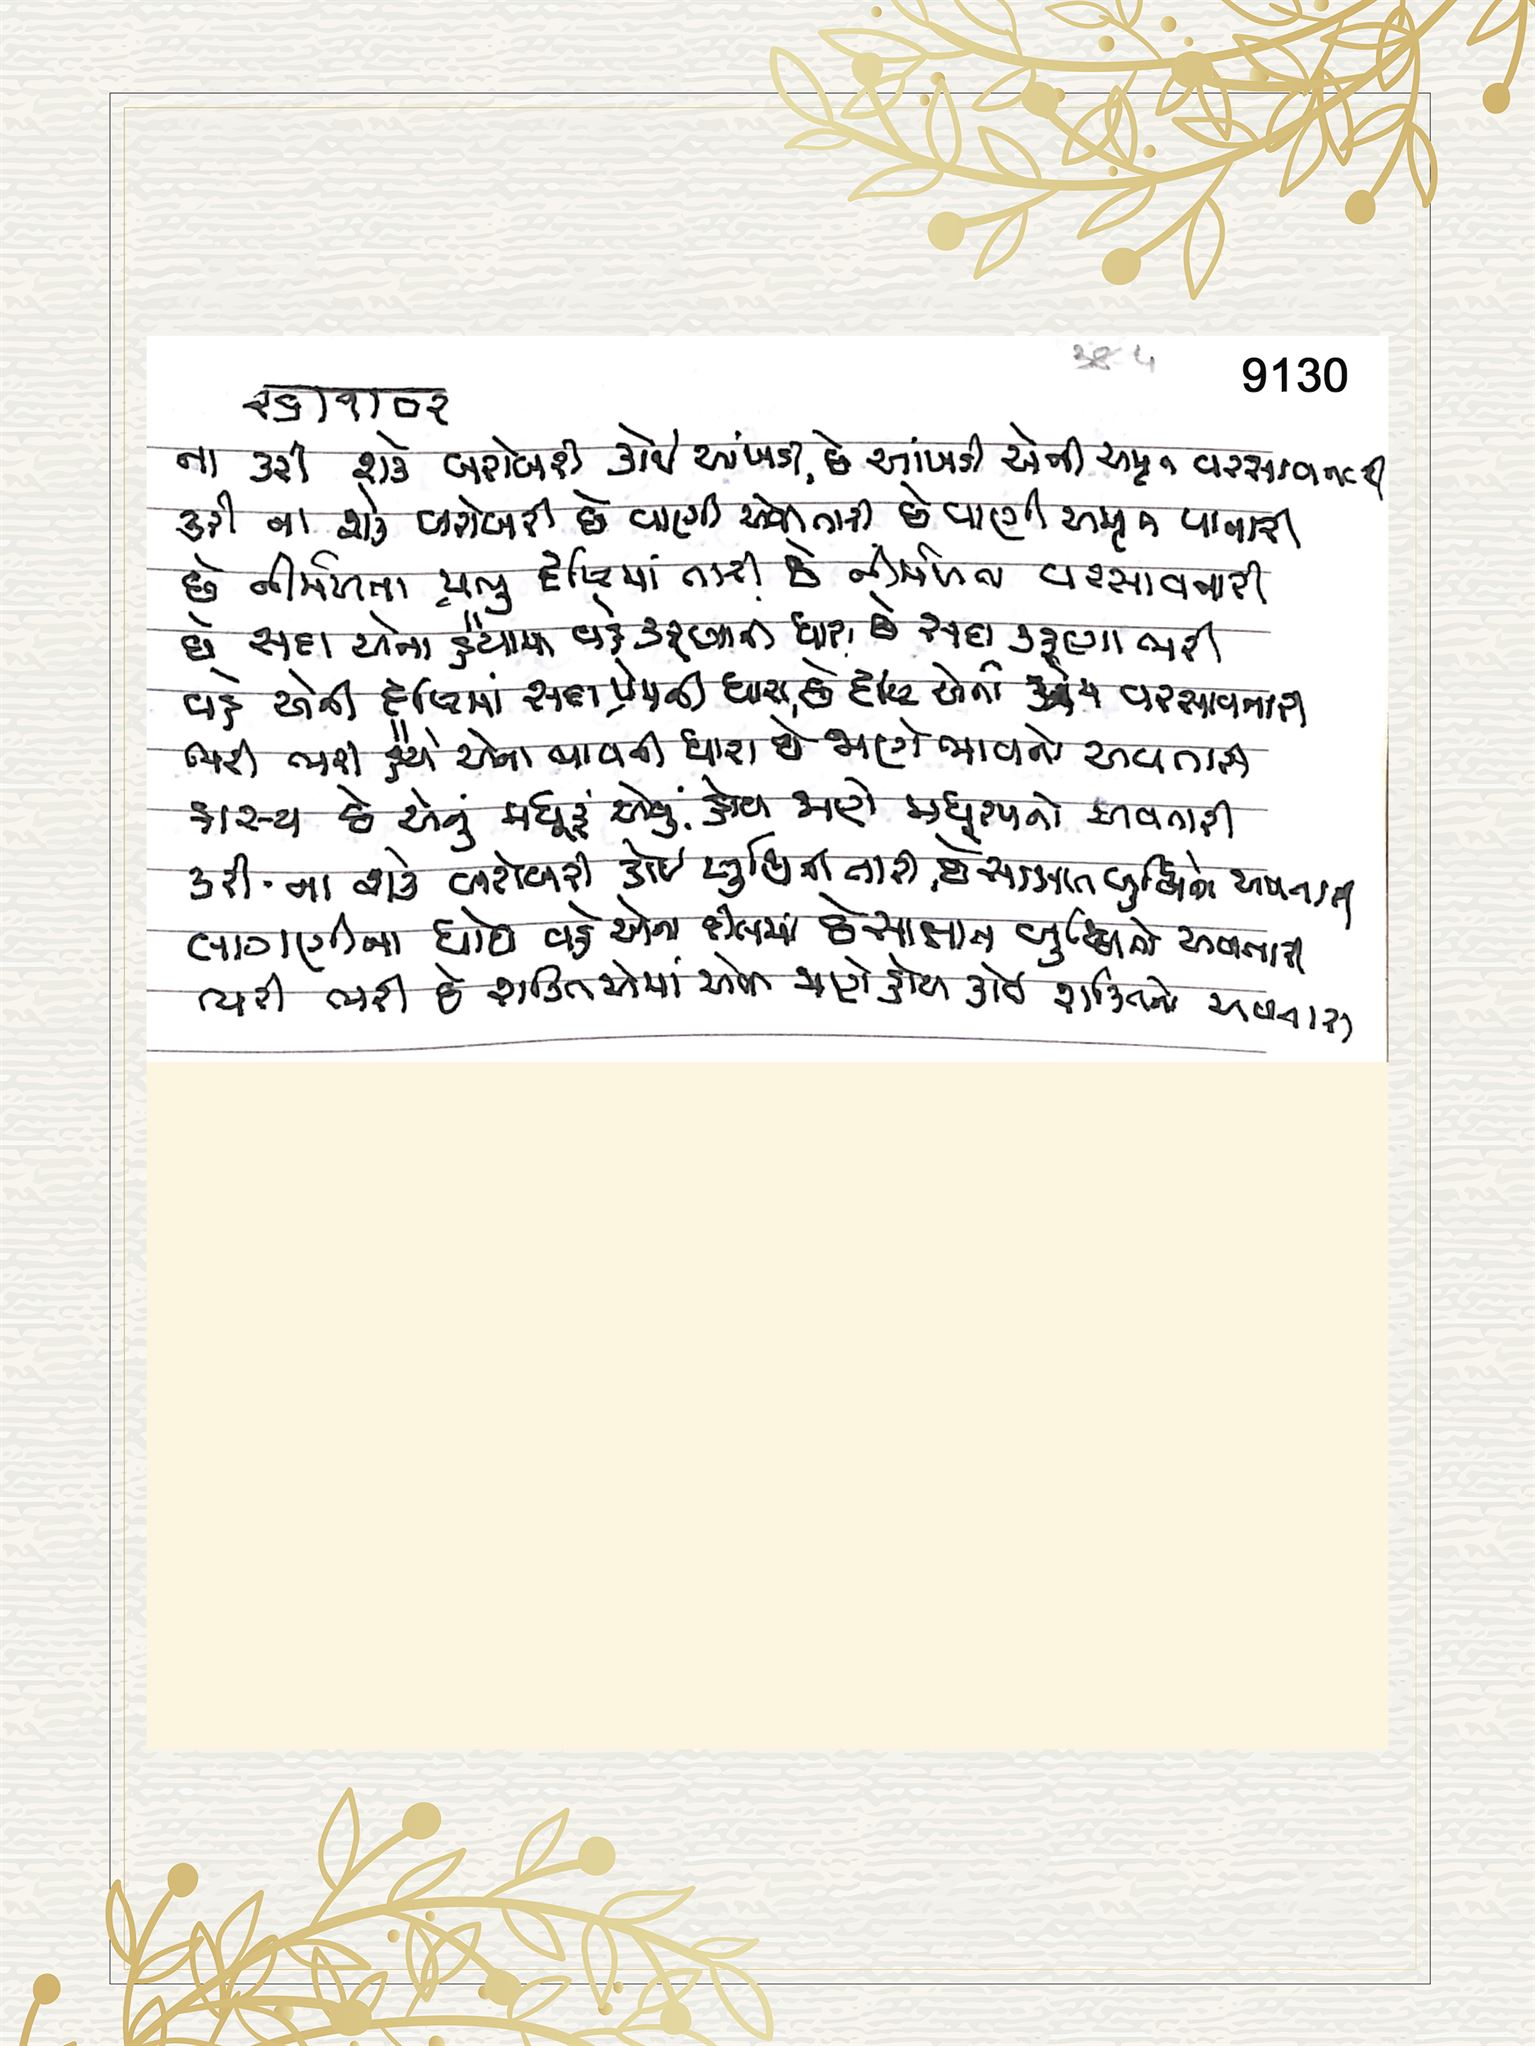 9130
ના કરી શકે બરોબરી કોઈ આંખડી, છે આંખડી એની અમૃત વરસાવનારી
કરી ના શકે બરોબરી છે વાણી એવી તારી છે વાણી અમૃત પાનારી
છે નીર્મળતા પ્રભુ દૃષ્ટિમાં તારી છે નીર્મળતા વરસાવનારી
છે સદા એના હૈયામાં વહે કરૂણાની ધારા છે સદા કરૂણા ભરી
વહે એની દૃષ્ટિમાં સદા પ્રેમની ધારા, છે દૃષ્ટિ એની પ્રેમ વરસાવનારી
ભરી ભરી હૈયે એના ભાવની ધારા છે જાણે ભાવનો અવતારી
હાસ્ય છે એનું મધૂરૂં એવું, હોય જાણે મધૂરપનો અવતારી
કરી ના શકે બરોબરી કોઈ બુદ્ધિની તારી, છે સાક્ષાત બુદ્ધિનો અવતારી
લાગણીના ધોધ વહે એના દીલમાં છે સાક્ષાત બુદ્ધિનો અવતારી
ભરી ભરી છે શક્તિ એમાં એવી જાણે હોય કોઈ શક્તિનો અવતારી